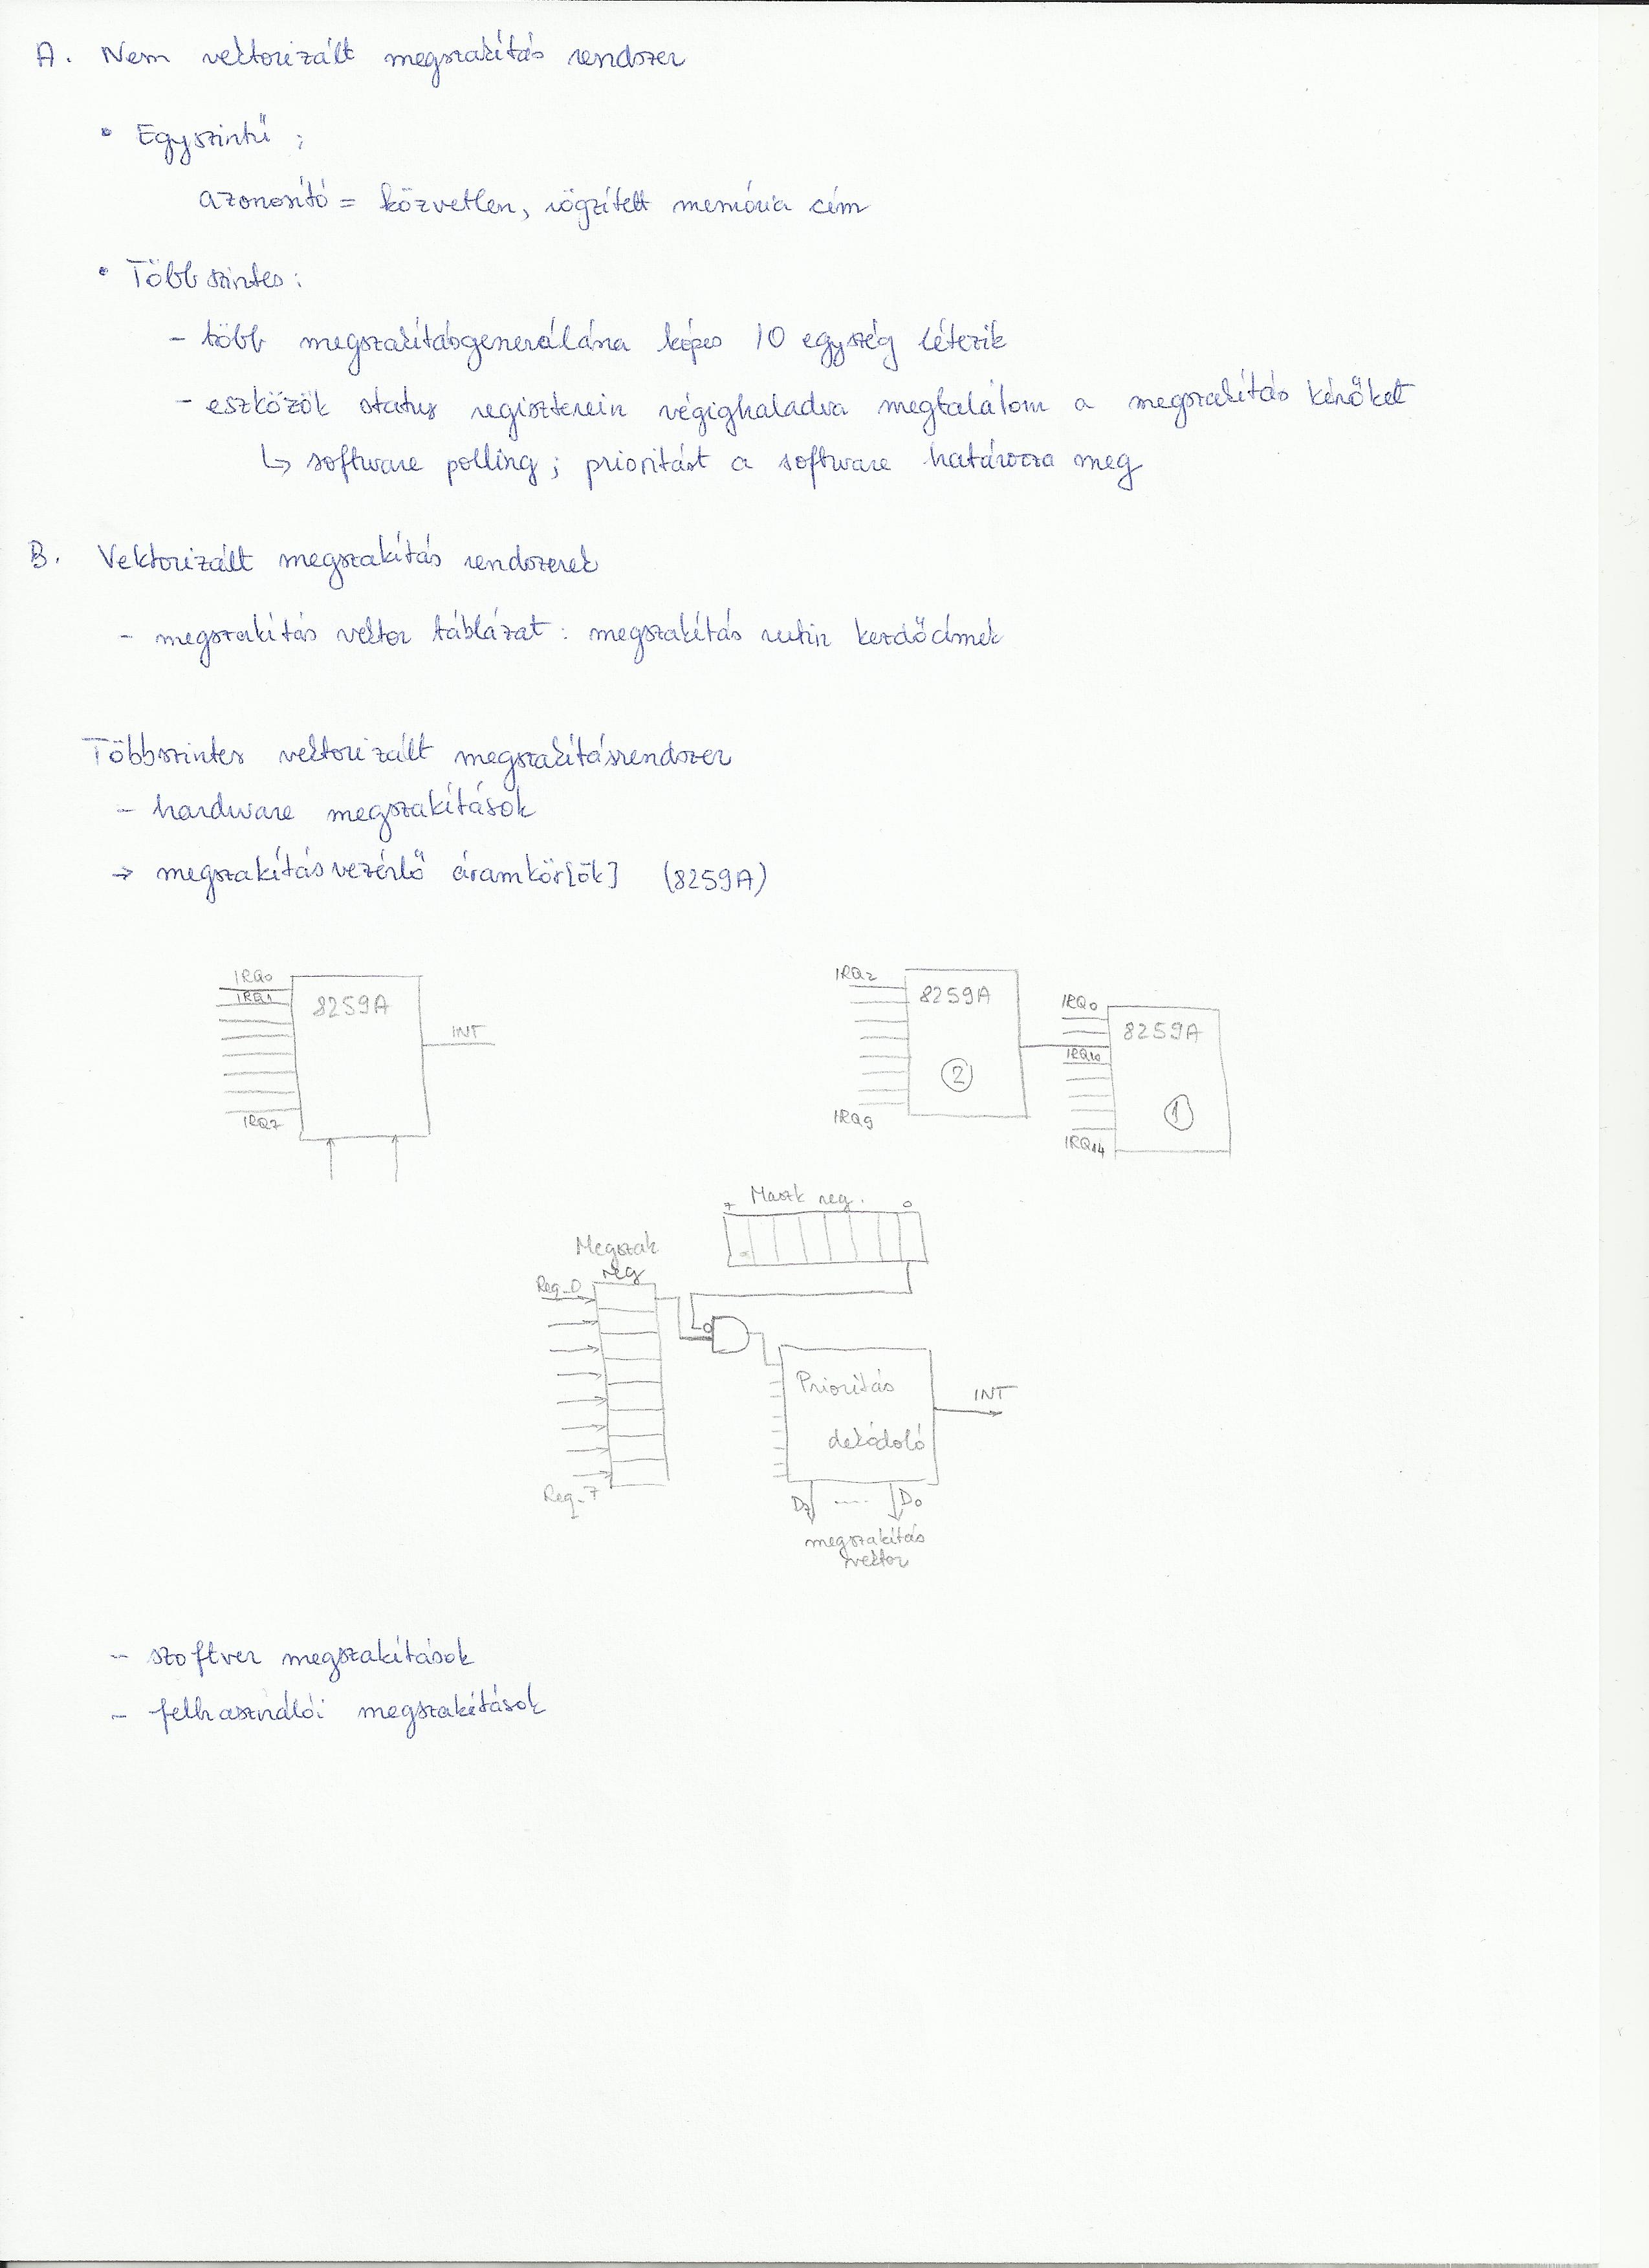 A. Nem vektorizált megszakítás rendszer
• Egyszintű ;
azonosító = közvetlen, rögzített memória cím
• Többszintes :
- több megszakításgenerálásra képes IO egység létezik
- eszközök status regiszterein végighaladva megtalálom a megszakítás kérőket
↳ software polling ; prioritást a software határozza meg
B. Vektorizált megszakítás rendszerek
- megszakítás vektor táblázat : megszakítás rutin kezdőcímek
Többszintes vektorizált megszakításrendszer
- hardware megszakítások
→ megszakításvezérlő áramkör[ök] (8259A)
IRQ0
IRQ1
8259A
INT
IRQ7
IRQ2
8259A
2
IRQ9
IRQ0
8259A
IRQ10
1
IRQ14
Maszk reg.
7 0
Megszak
reg
Req_0
Req_7
Prioritás
dekódoló
INT
D7 .... D0
megszakítás
vektor
- szoftver megszakítások
- felhasználói megszakítások